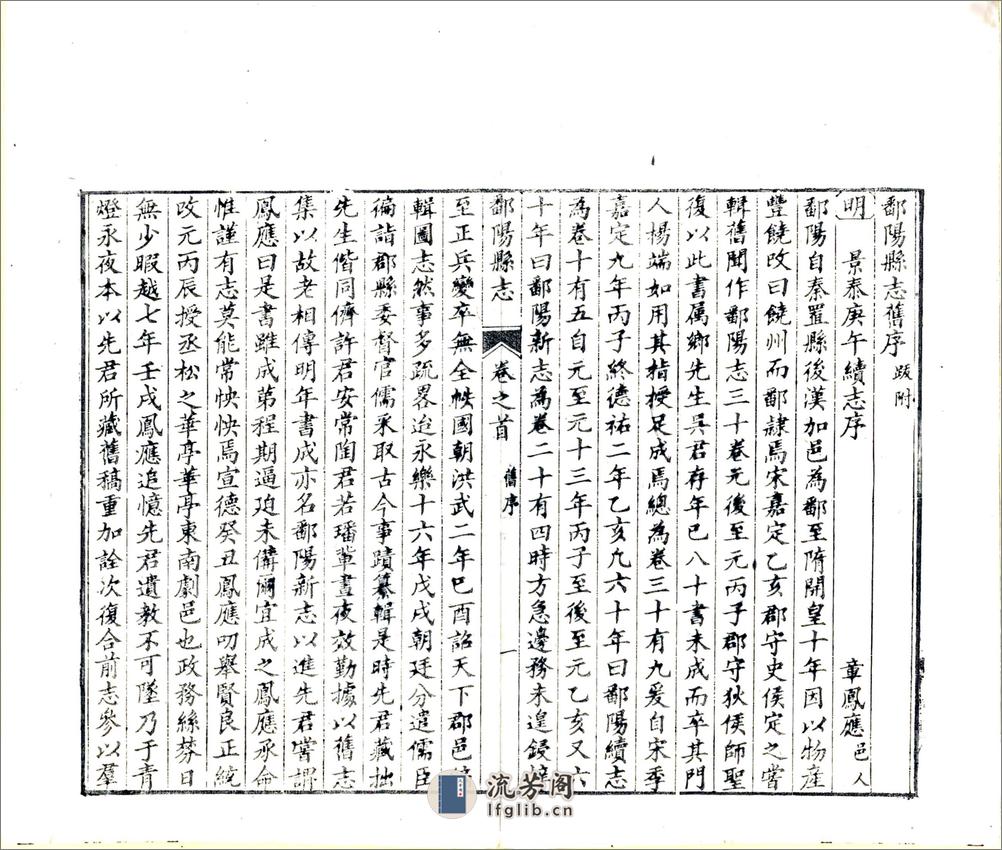 鄱陽縣志舊序 跋附
明 景泰庚午續志序 章鳳應邑人
鄱陽自秦置縣後漢加邑為鄱至隋開皇十年因以物產
豐饒改曰饒州而鄱隸焉宋嘉定乙亥郡守史侯定之嘗
輯舊聞作鄱陽志三十卷元後至元丙子郡守狄侯師聖
復以此書属鄉先生吳君存年已八十書未成而卒其門
人楊端如用其指授足成焉總為卷三十有九爰自宋季
嘉定九年丙子終德祐二年乙亥凢六十年曰鄱陽續志
為卷十有五自元至元十三年丙子至後至元乙亥又六
十年曰鄱陽新志為卷二十有四時方急邊務未遑鋟
鄱陽縣志 卷之首 舊序 一
至正兵變卒無全帙國朝洪武二年巳酉詔天下郡邑
輯圖志然事多疏畧迨永樂十六年戊戌朝廷分遣儒臣
徧詣郡縣委督官儒采取古今事蹟纂輯是時先君藏拙
先生偕同儕許君安常閏君若璠軰晝夜效勤據以舊志
集以故老相傳明年書成亦名鄱陽新志以進先君嘗謂
鳳應曰是書雖成第程期逼廹未備爾宜成之鳳應承命
惟謹有志莫能常怏怏焉宣德癸丑鳳應叨舉賢良正統
改元丙辰授丞松之華亭華亭東南劇邑也政務絲棼日
無少暇越七年壬戌鳳應追憶先君遺教不可墜乃于青
燈永夜本以先君所藏舊稿重加詮次復合前志參以羣
流芳阁
lfglib.cn